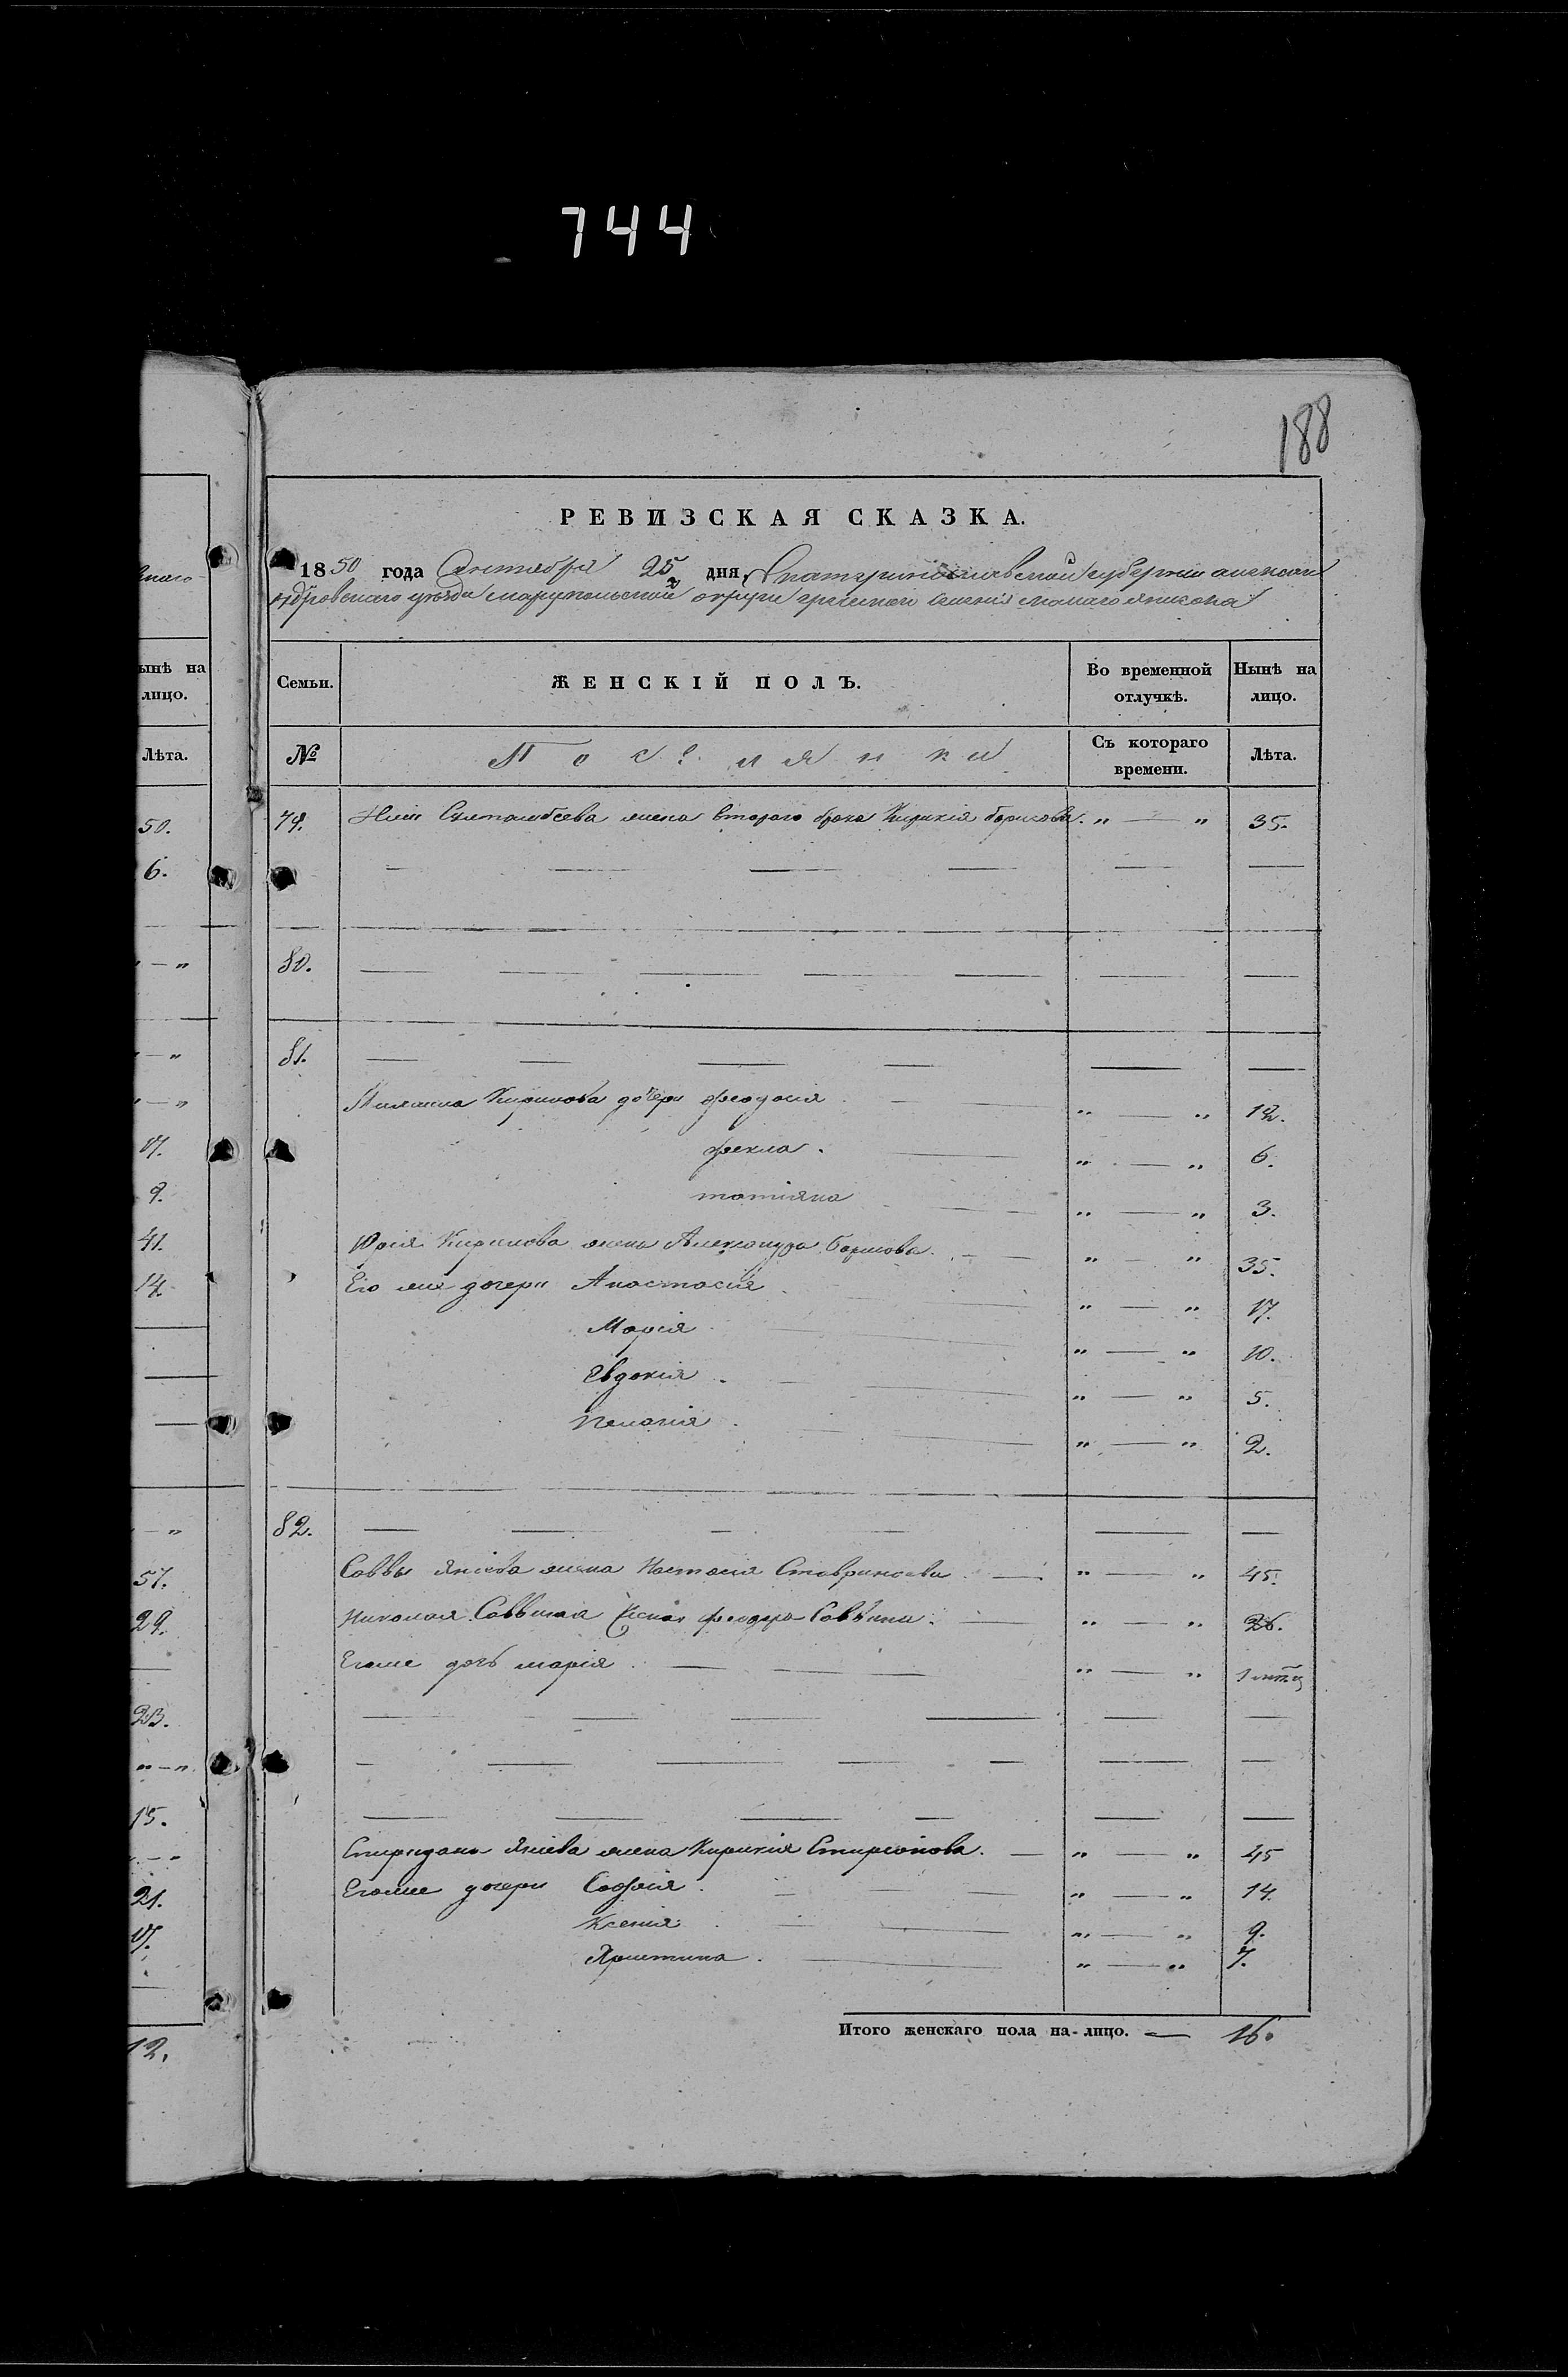 744
188
РЕВИЗСКАЯ СКАЗКА.
1850 года Сентября 25 дня, Екатеринославской губернии александ
ровского уезда мариупольской округи греческой селения малаго Яникола
Семьи. ЖЕНСКІЙ ПОЛЪ. Во временной отлучкѣ. Нынѣ на лицо.
№ Поселянки Съ котораго времени. Лѣта.
79. Султанбеева жена втораго брака Кирикія борисова. „ — „ 35.
80.
81.
Кирилова дочери феодосія „ — „ 12.
фекла. „ — „ 6.
татіяна „ — „ 3.
Юрія Кирилова жена Александра Борисова. „ — „ 35.
Его же дочери Анастасія „ — „ 17.
Марія „ — „ 10.
Евдокія „ — „ 5.
Пелагія „ — „ 2.
82.
Саввы Яніева жена Настасія Ставринова „ — „ 45.
Николая Саввина жена феодора Саввина. „ — „ 26.
Егоже дочь марія „ — „ 1
Спиридона Яніева жена Кирикія Спиридонова. „ — „ 45
Егоже дочери Софія „ — „ 14.
Ксенія „ — „ 9.
Христина „ — „ 7.
Итого женскаго пола на-лицо. — 16.
ынѣ на
лицо.
Лѣта.
50.
6.
17.
9.
41.
14.
57.
29.
23.
15.
21.
17.
12.